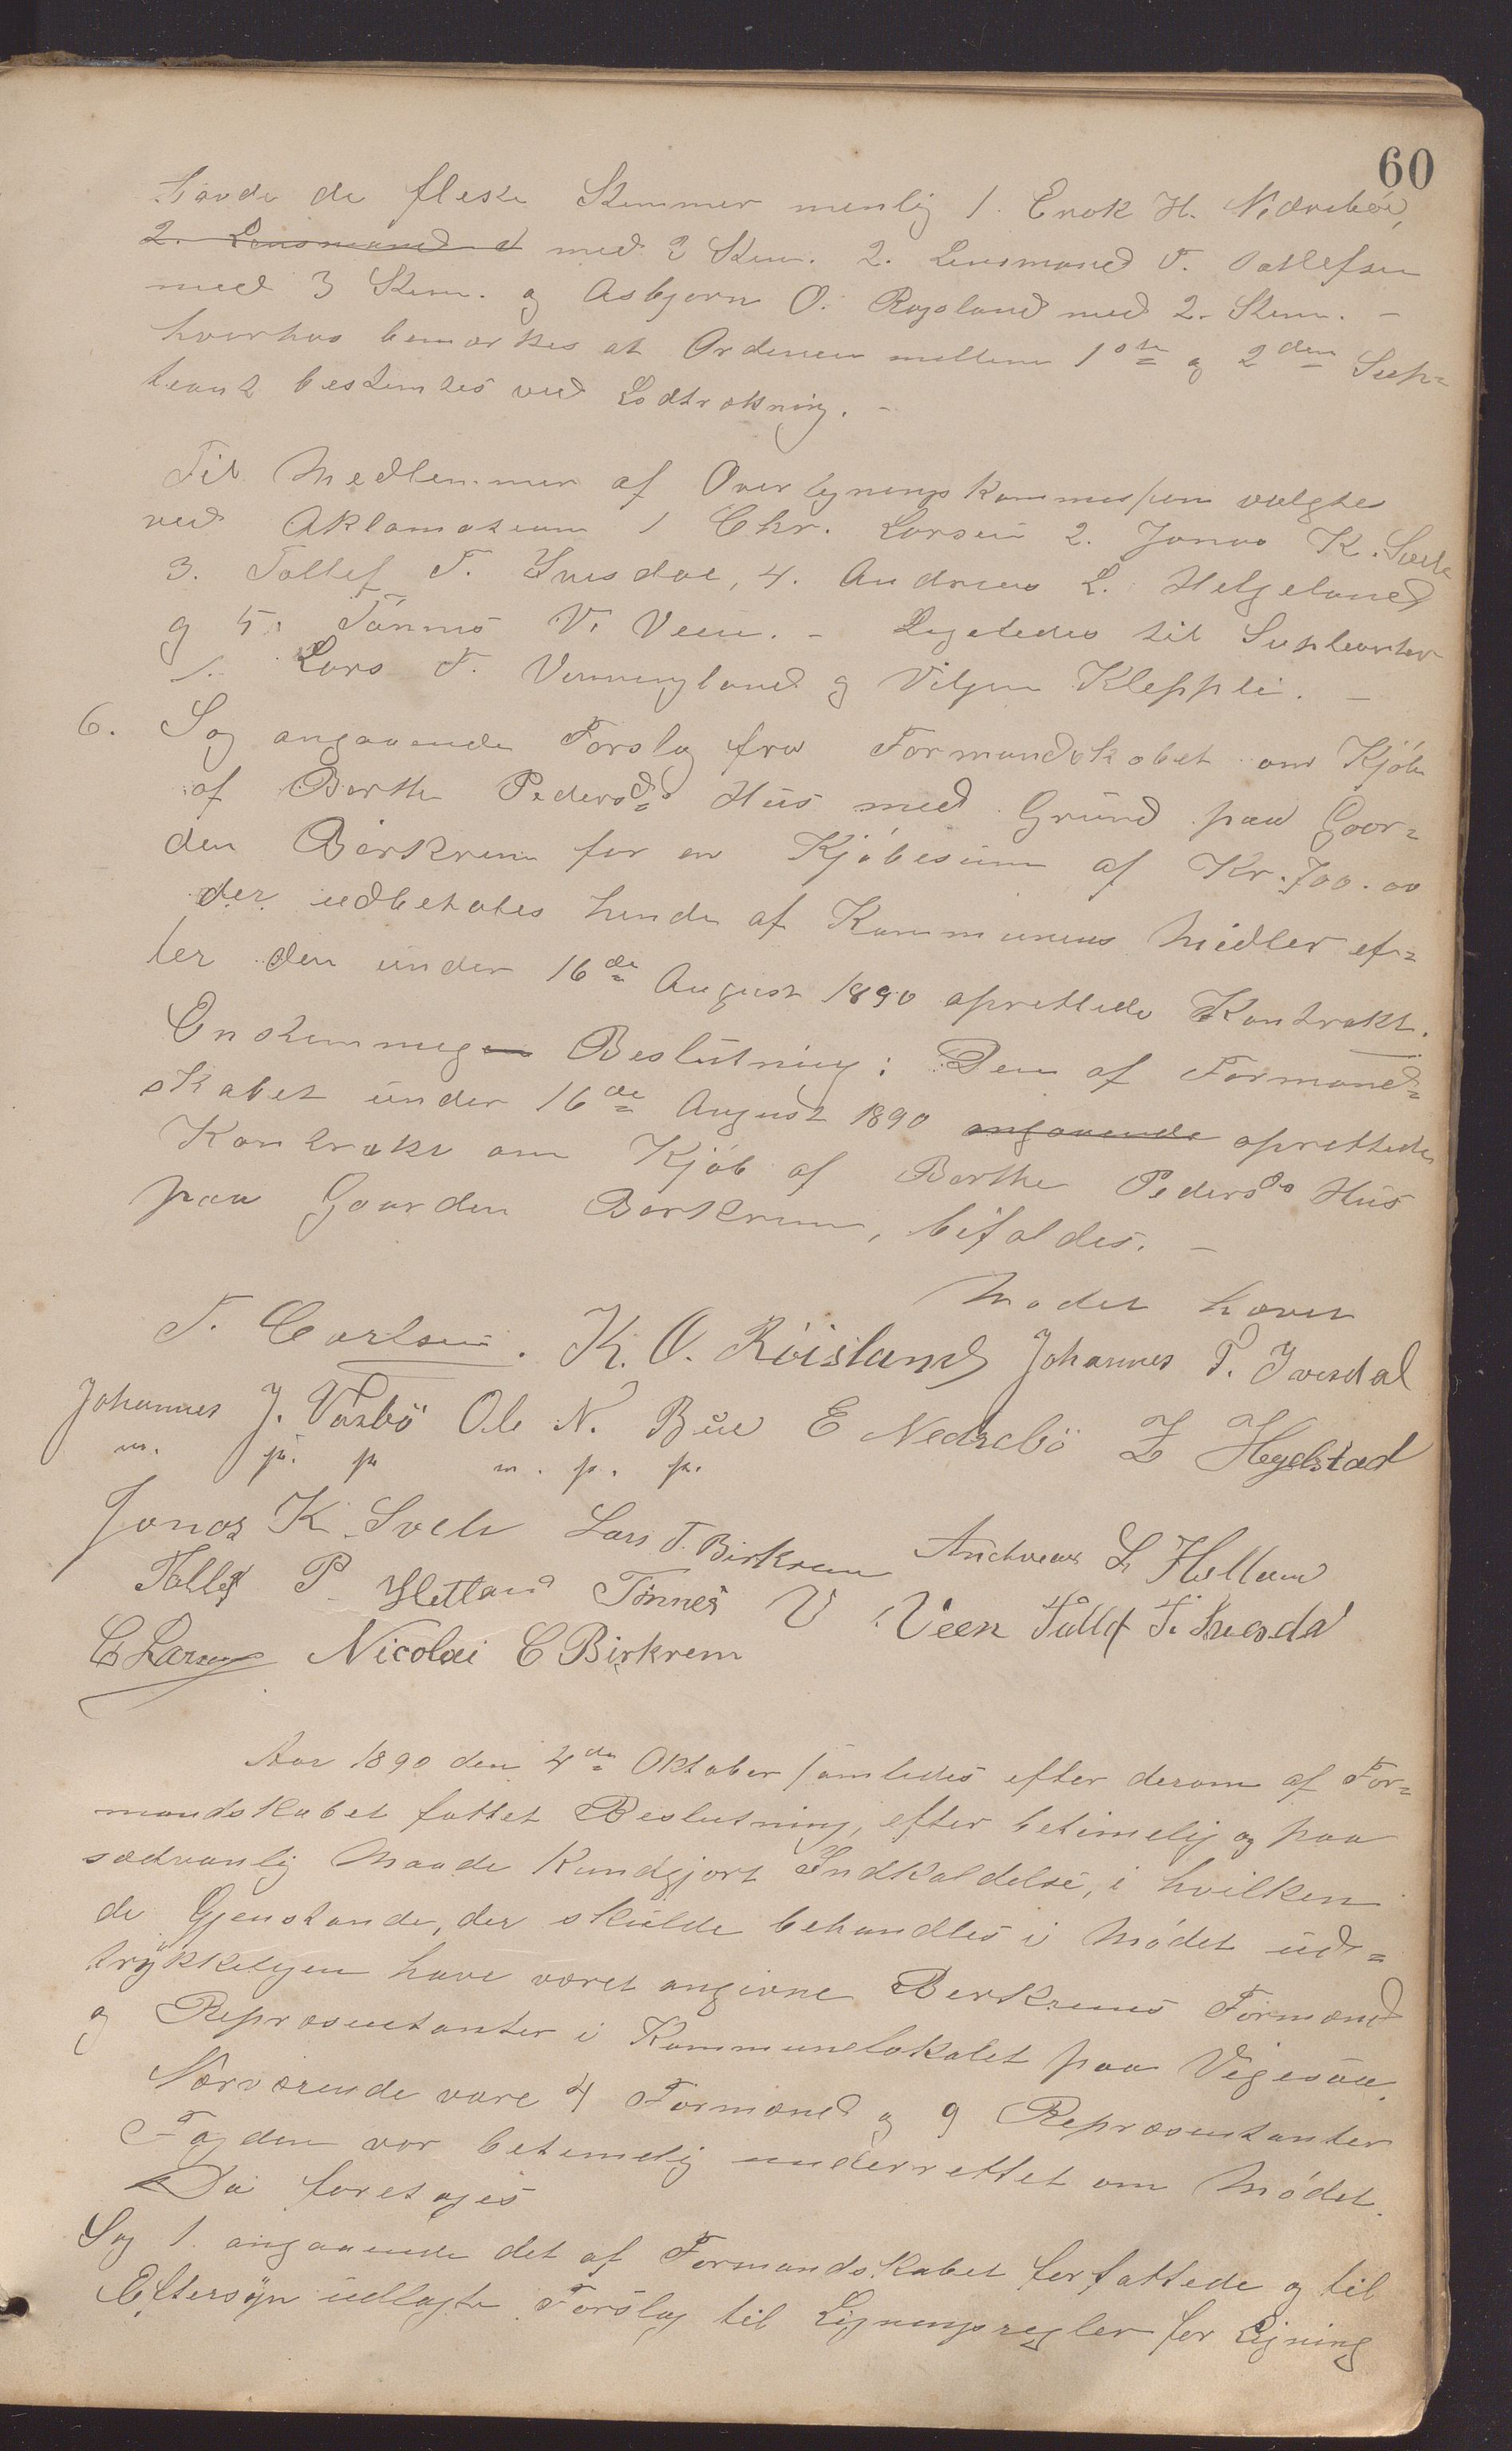 60
havde de fleste Stemmer nemlig 1. Enok H. Nedrebøe,
2. Lensmand d med 3 Stem. 2. Lensmand T. Tollefsen
med 3 Stem. og Asbjørn O. Rogsland med 2. Stem. –
hvorhos bemærkes at Ordenen mellem 1ste og 2den Sup=
leant bestemtes ved Lodtrækning. –
Til Medlemmer af Overligningskommissjon valgtes
ved Aklamation 1 Chr. Larsen 2. Jonas K. Svele
3. Tollef T. Ivesdal, 4. Andreas L. Helgeland
og 5. Tønnes V. Veen. – Ligeledes til Supleanter
1. Lars T. Vinningland og Viljem Kleppli. –
6. Sag angaaende Forslag fra Formandskabet om Kjøb
af Berthe Pedersds Hus med Grund paa Gaar=
den Birkrem for en Kjøbesum af Kr. 700.00
der udbetales hende af Kommunens Midler ef=
ter den under 16de August 1890 oprettede Kontrakt.
Enstemmig Beslutning: Den af Formand=
skabet under 16de August 1890 angaaende oprettede
Kontrakt om Kjøb af Berthe Pedersds Hus
paa Gaarden Berkrem, bifaldes. –
Mødet hævet
T. Carlsen. K. O. Røisland Johannes T. Ivesdal
Johannes J. Vasbö Ole N. Bue E Nedrebö Z Hegelstad
m. p. p. m. p. p.
Jonas K. Svele Lars T. Birkrem Andreas L Hølland
Tollef P. Hetland Tönnes V. Veen Tollef T. Ivesdal
C Larsen Nicolai C Birkrem
Aar 1890 den 4de Oktober samledes efter derom af For=
mandskabet fattet Beslutning, efter betimelig og paa
sædvanlig Maade Kundgjort Indkaldelse, i hvilken
de Gjenstande, der skulde behandles i Mødet ud=
trykkeligen have været angivne Berkrems Formænd
og Repræsentanter i Kommunelokalet paa Vigesaa.
Nærværende vare 4 Formænd og 9 Repræsentanter
Fogden var betimelig underrettet om Mødet.
Da foretages
Sag 1. angaaende det af Formandskabet forfattede og til
Eftersyn udlagte Forslag til Ligningsregler for Ligning